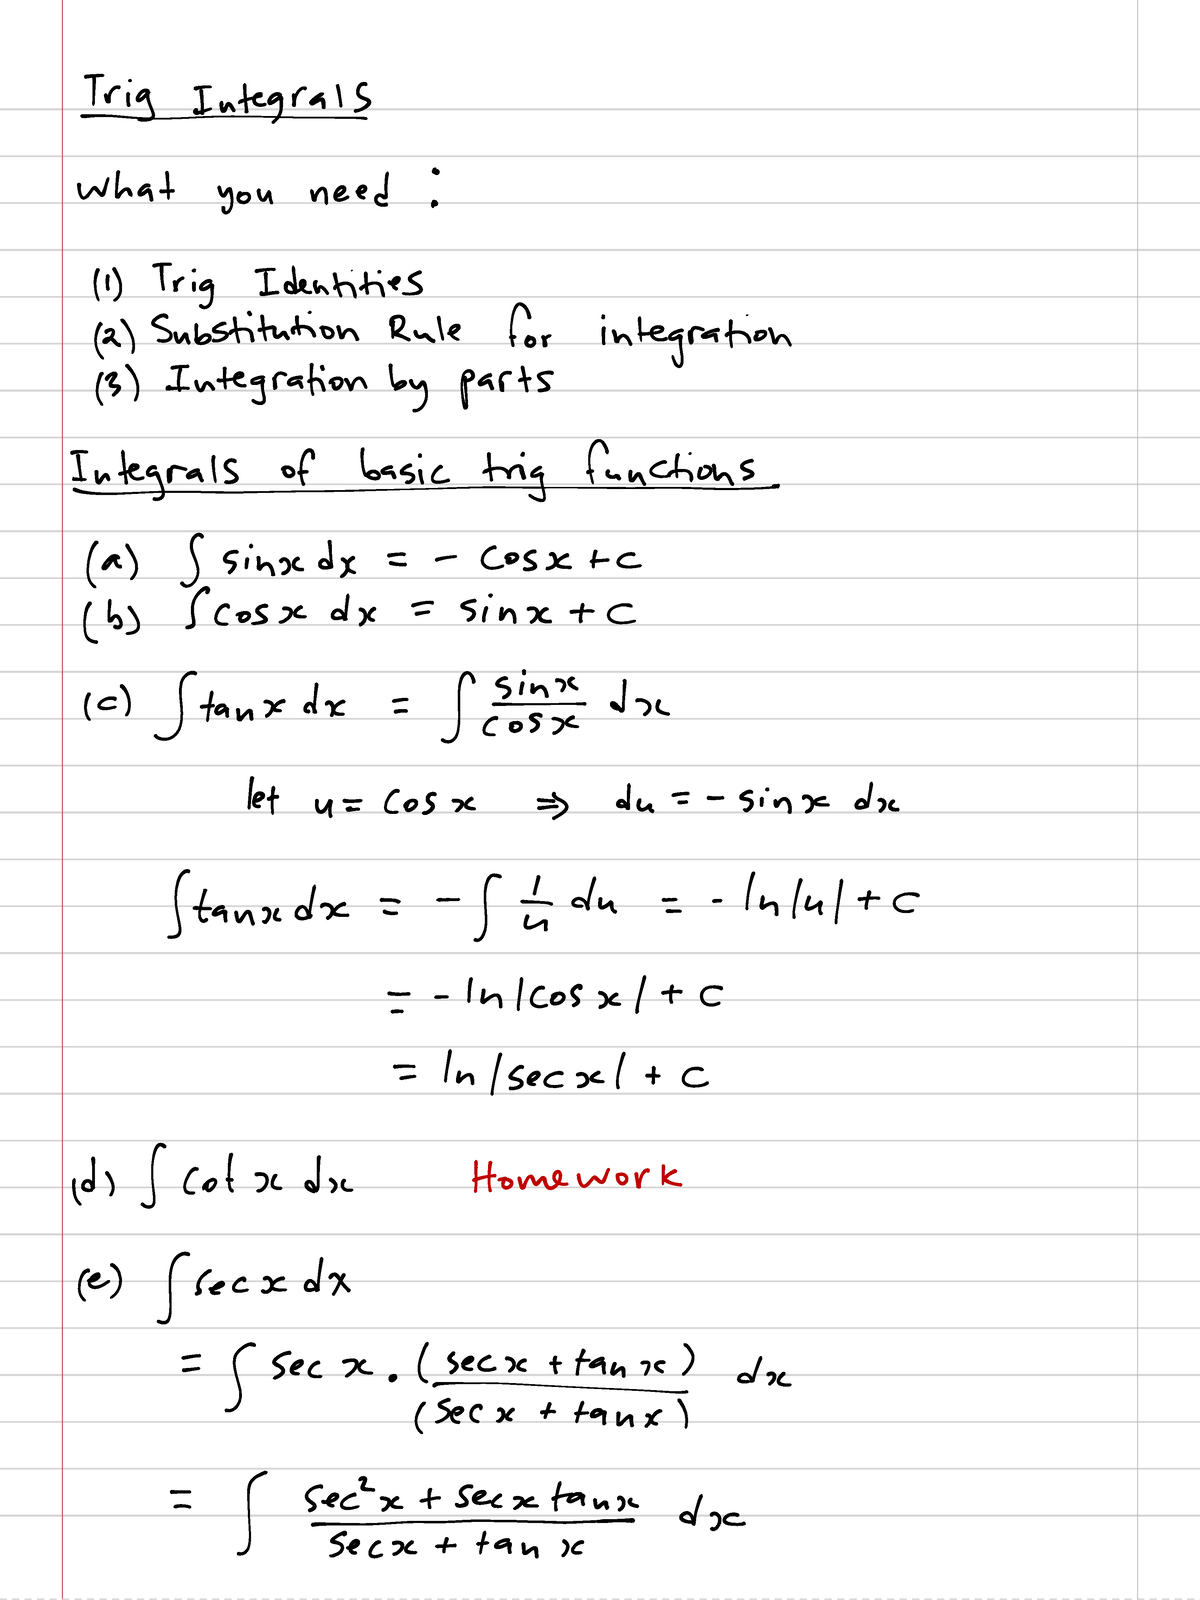 Trig Integrals
What you need :
(1) Trig Identities
(2) Substitution Rule for integration
(3) Integration by parts
Integrals of basic trig functions
(a) ∫ sinx dx = - cosx + c
(b) ∫ cosx dx = sinx + c
(c) ∫ tanx dx = ∫ sinx/cosx dx
let u = cosx ⇒ du = - sinx dx
∫ tanx dx = - ∫ 1/u du = - ln|u| + c
= - ln|cosx| + c
= ln|secx| + c
(d) ∫ cotx dx Homework
(e) ∫ secx dx
= ∫ secx . (secx + tanx)/(secx + tanx) dx
= ∫ sec²x + secx tanx/secx + tanx dx